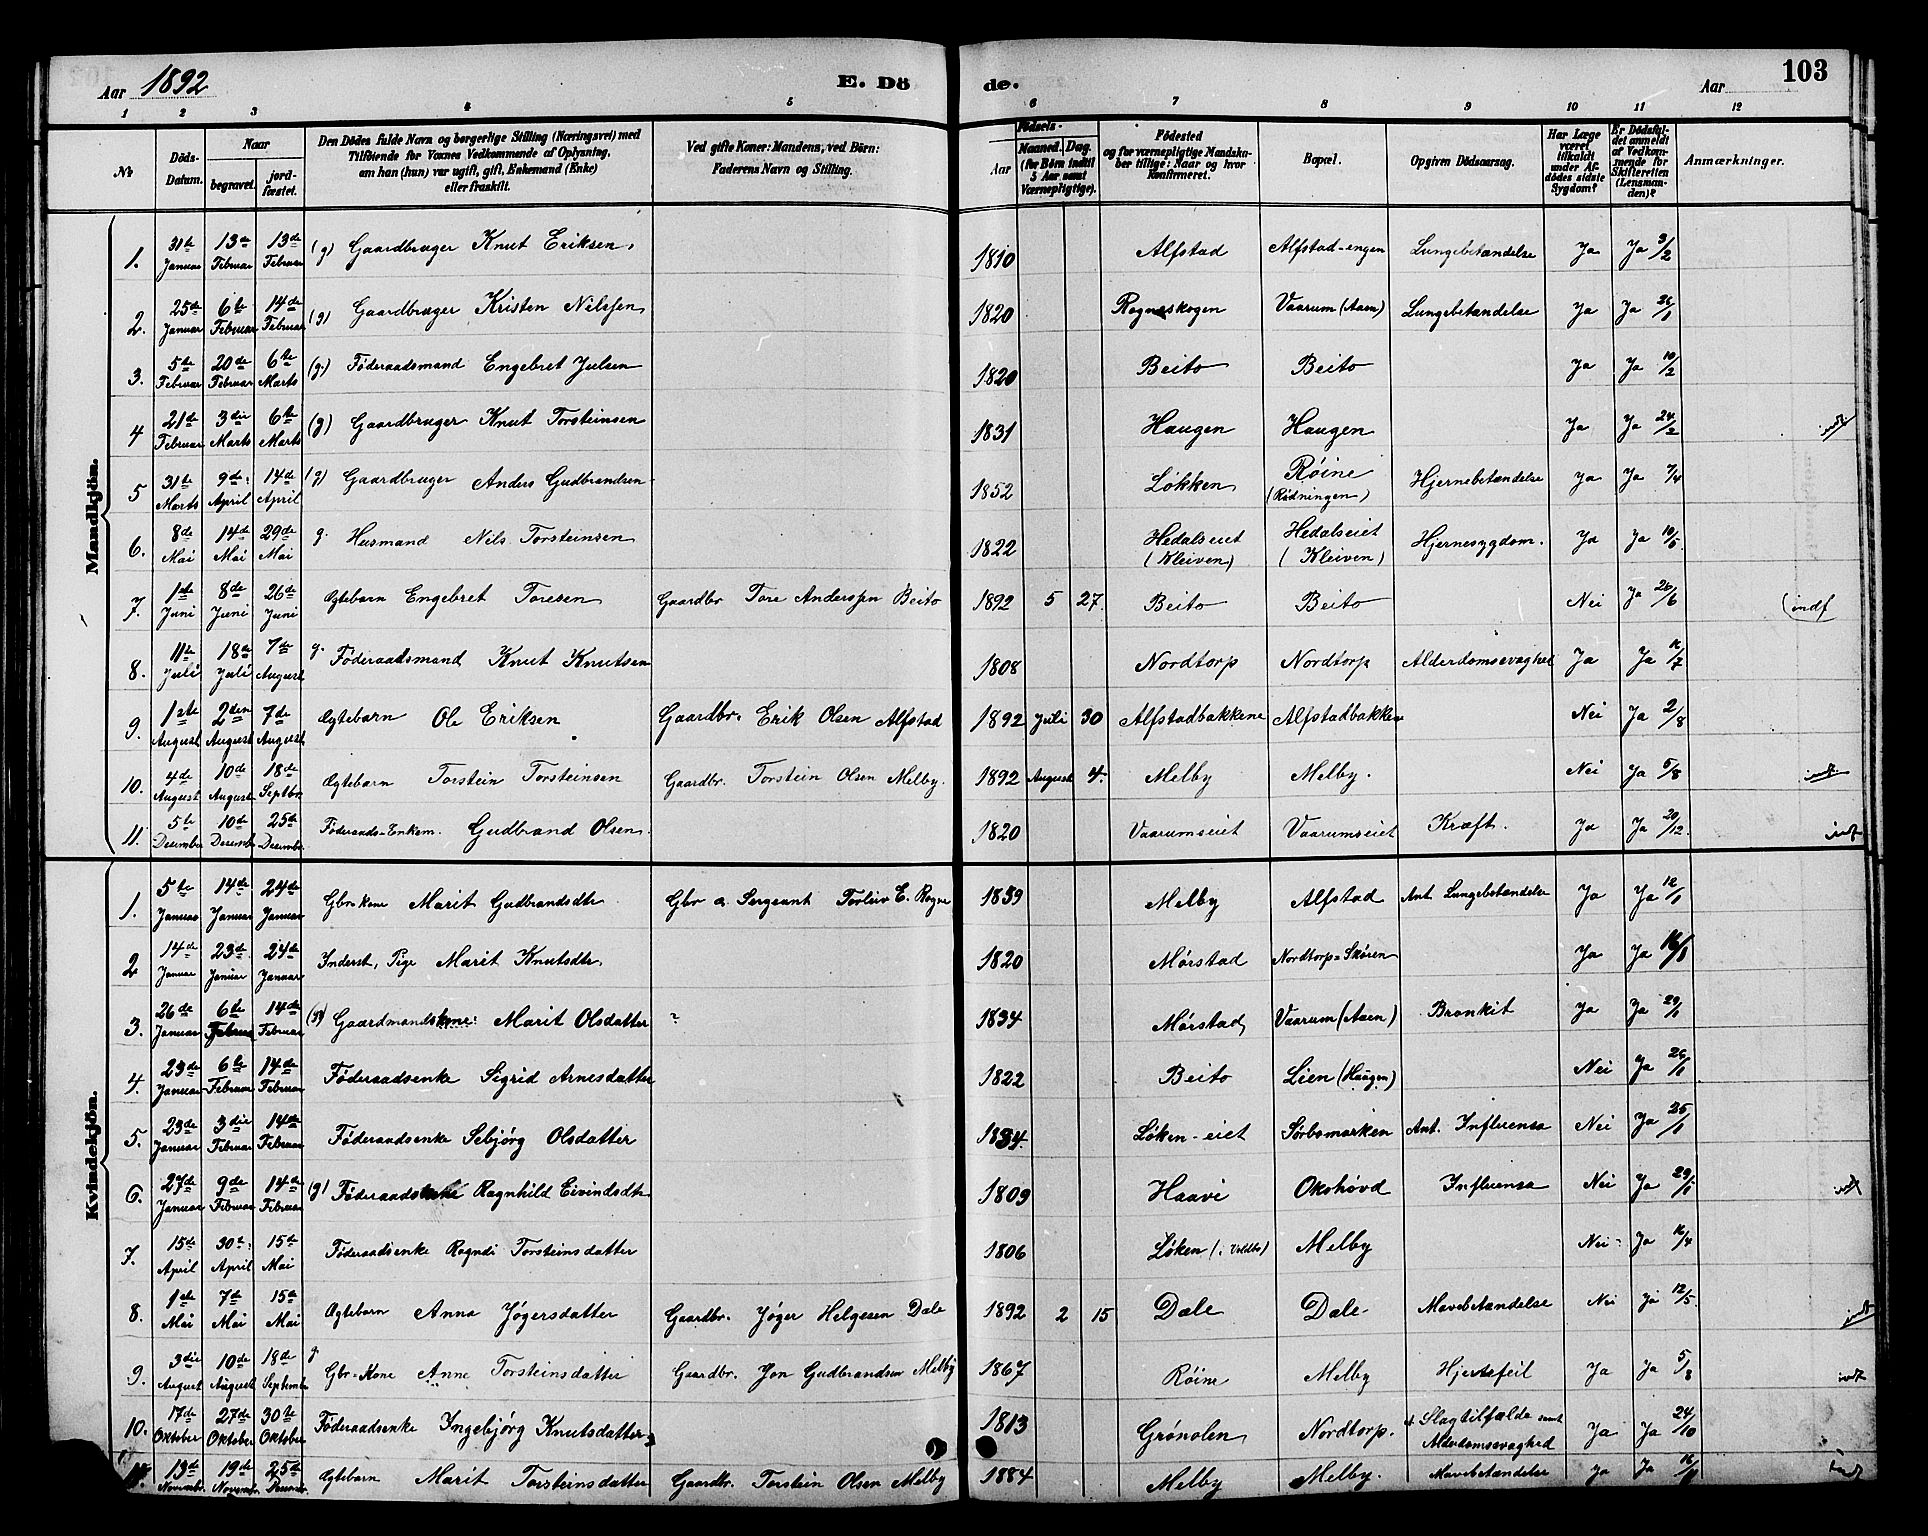 Aar 1892 E. Dö de. Aar 103
1 2 3 4 5 6 7 8 9 10 11 12
№ Döds-Datum. Naar begravet. jordfæstet. Den Dödes fulde Navn og borgerlige Stilling (Næringsvei) med Tilföiende for Voxnes Vedkommende af Oplysning, om han (hun) var ugift, gift, Enkemand (Enke) eller fraskilt. Ved gifte Koner: Mandens, ved Börn: Faderens Navn og Stilling. Födsels- Aar Maaned. Dag. (for Börn indtil 5 Aar samt Værnepligtige). Födested og for værnepligtige Mandskaber tillige: Naar og hvor Konfirmeret. Bopæl. Opgiven Dödsaarsag. Har Læge været tilkaldt under Afdödes sidste Sygdom? Er Dödsfaldet anmeldt af Vedkommende for Skifteretten (Lensmanden)? Anmærkninger.
Mandkjön.
1. 31te Januar 13de Februar 13de Februar (g) Gaardbruger Knut Eriksen. 1810 Alfstad Alfstad-engen Lungebetændelse Ja Ja 3/2
2. 25de Januar 6te Februar 14de Februar (g) Gaardbruger Kristen Nilssen 1820 Rogneskogen Vaarum (Aaen) Lungebetændelse Ja Ja 26/1
3. 5te Februar 20de Februar 6te Marts (g) Föderaadsmand Engebret Julsen 1820 Beito Beito Ja Ja 10/2
4 21de Februar 3die Marts 6te Marts (g) Gaardbruger Knut Torsteinsen 1831 Haugen Haugen Ja Ja 24/2 indf
5 31te Marts 9de April 14de April (g) Gaardbruger Anders Gudbrandsen 1852 Løkken Røine (Rødningen) Hjernebetændelse Ja Ja 7/4
6. 8de Mai 14de Mai 29de Mai g. Husmand Nils Torsteinsen 1822 Hedalseiet (Kleiven) Hedalseiet (Kleiven) Hjernesygdom. Ja Ja 10/5
7. 1ste Juni 8de Juni 26de Juni Ægtebarn Engebret Toresen Gaardbr Tore Anderssen Beito 1892 5 27 Beito Beito Nei Ja 26/6 indf
8. 11te Juli 18de Juli 7de August g. Föderaadsmand Knut Knutsen 1808 Nordtorp Nordtorp Alderdomssvaghed Ja Ja /7
9. 1ste August 2den August 7de August Ægtebarn Ole Eriksen Gaardbr. Erik Olsen Alfstad 1892 Juli 30 Alfstadbakkene Alfstadbakken Nei Ja 2/8
10. 4de August 10de August 18de Septbr Ægtebarn Torstein Torsteinsen Gaardbr. Torstein Olsen Melby. 1892 August 4. Melby Melby. Nei Ja 5/8 indf
11. 5te Desember 10de Desember 25de Desember Føderaads-Enkem. Gudbrand Olsen. 1820 Vaarumseiet Vaarumseiet Kræft. Ja Ja 20/12. indf
Kvindekjön.
1. 5te Januar 14de Januar 24de Januar Gbrkone Marit Gudbrandsdtr Gbr o. Sergeant Torleiv E. Rogne 1859 Melby Alfstad Ant. Lungebetændelse Ja Ja 12/1
2 14de Januar 23de Januar 24de Januar Inderst, Pige Marit Knutsdtr. 1820 Mørstad Nordtorp-Skøien Ja Ja 16/1
3. 26de Januar 6te Februar 14de Februar (g) Gaardmandskone: Marit Olsdatter ? 1834 Mørstad Vaarum (Aaen) Bronkit Ja Ja 29/1
4. 23de Januar 6te Februar 14de Februar Föderaadsenke Sigrid Arnesdatter 1822 Beito Lien (Haugen) Nei Ja 26/1
5. 23de Januar 3die Februar 14de Februar Föderaadsenke Sebjørg Olsdatter 1834. Løken-eiet Sørbømarken Ant. Influensa Nei Ja 25/1
6. 27de Januar 9de Februar 14de Februar (g) Föderaadskone Ragnhild Eivindsdtr 1809 Haavi Okshövd Influensa Nei Ja 29/1 indf
7. 15de April 30te April 15de Mai Föderaadsenke Ragndi Torsteinsdatter 1806 Løken (i Voldbo) Melby Nei Ja 16/4
8. 1ste Mai 7de Mai 15de Mai Ægtebarn Anna Jøgersdatter Gaardbr. Jøger Helgesen Dale 1892 2 15 Dale Dale Mavebetændelse Nei Ja 12/5. indf
9. 3die August 10de August 18de Septembr g. Gbr-Kone Anne Torsteinsdatter Gaardbr. Jon Gudbrandsen Melby 1867 Røine Melby Hjertefeil Ja Ja 5/8 indf
10. 17de Oktober 27de Oktober 30te Oktober Föderaadsenke Ingebjörg Knutsdatter 1813 Grønolen Nordtorp. et Slagtilfælde samt Alderdomssvaghed Ja Ja 24/10
11. 13de Novembr. 19de Novembr. 25de Desmbr. Ægtebarn Marit Torsteinsdatter Gaardbr. Torstein Olsen Melby 1884 Melby Melby. Mavebetændelse Ja Ja 16/11 indf